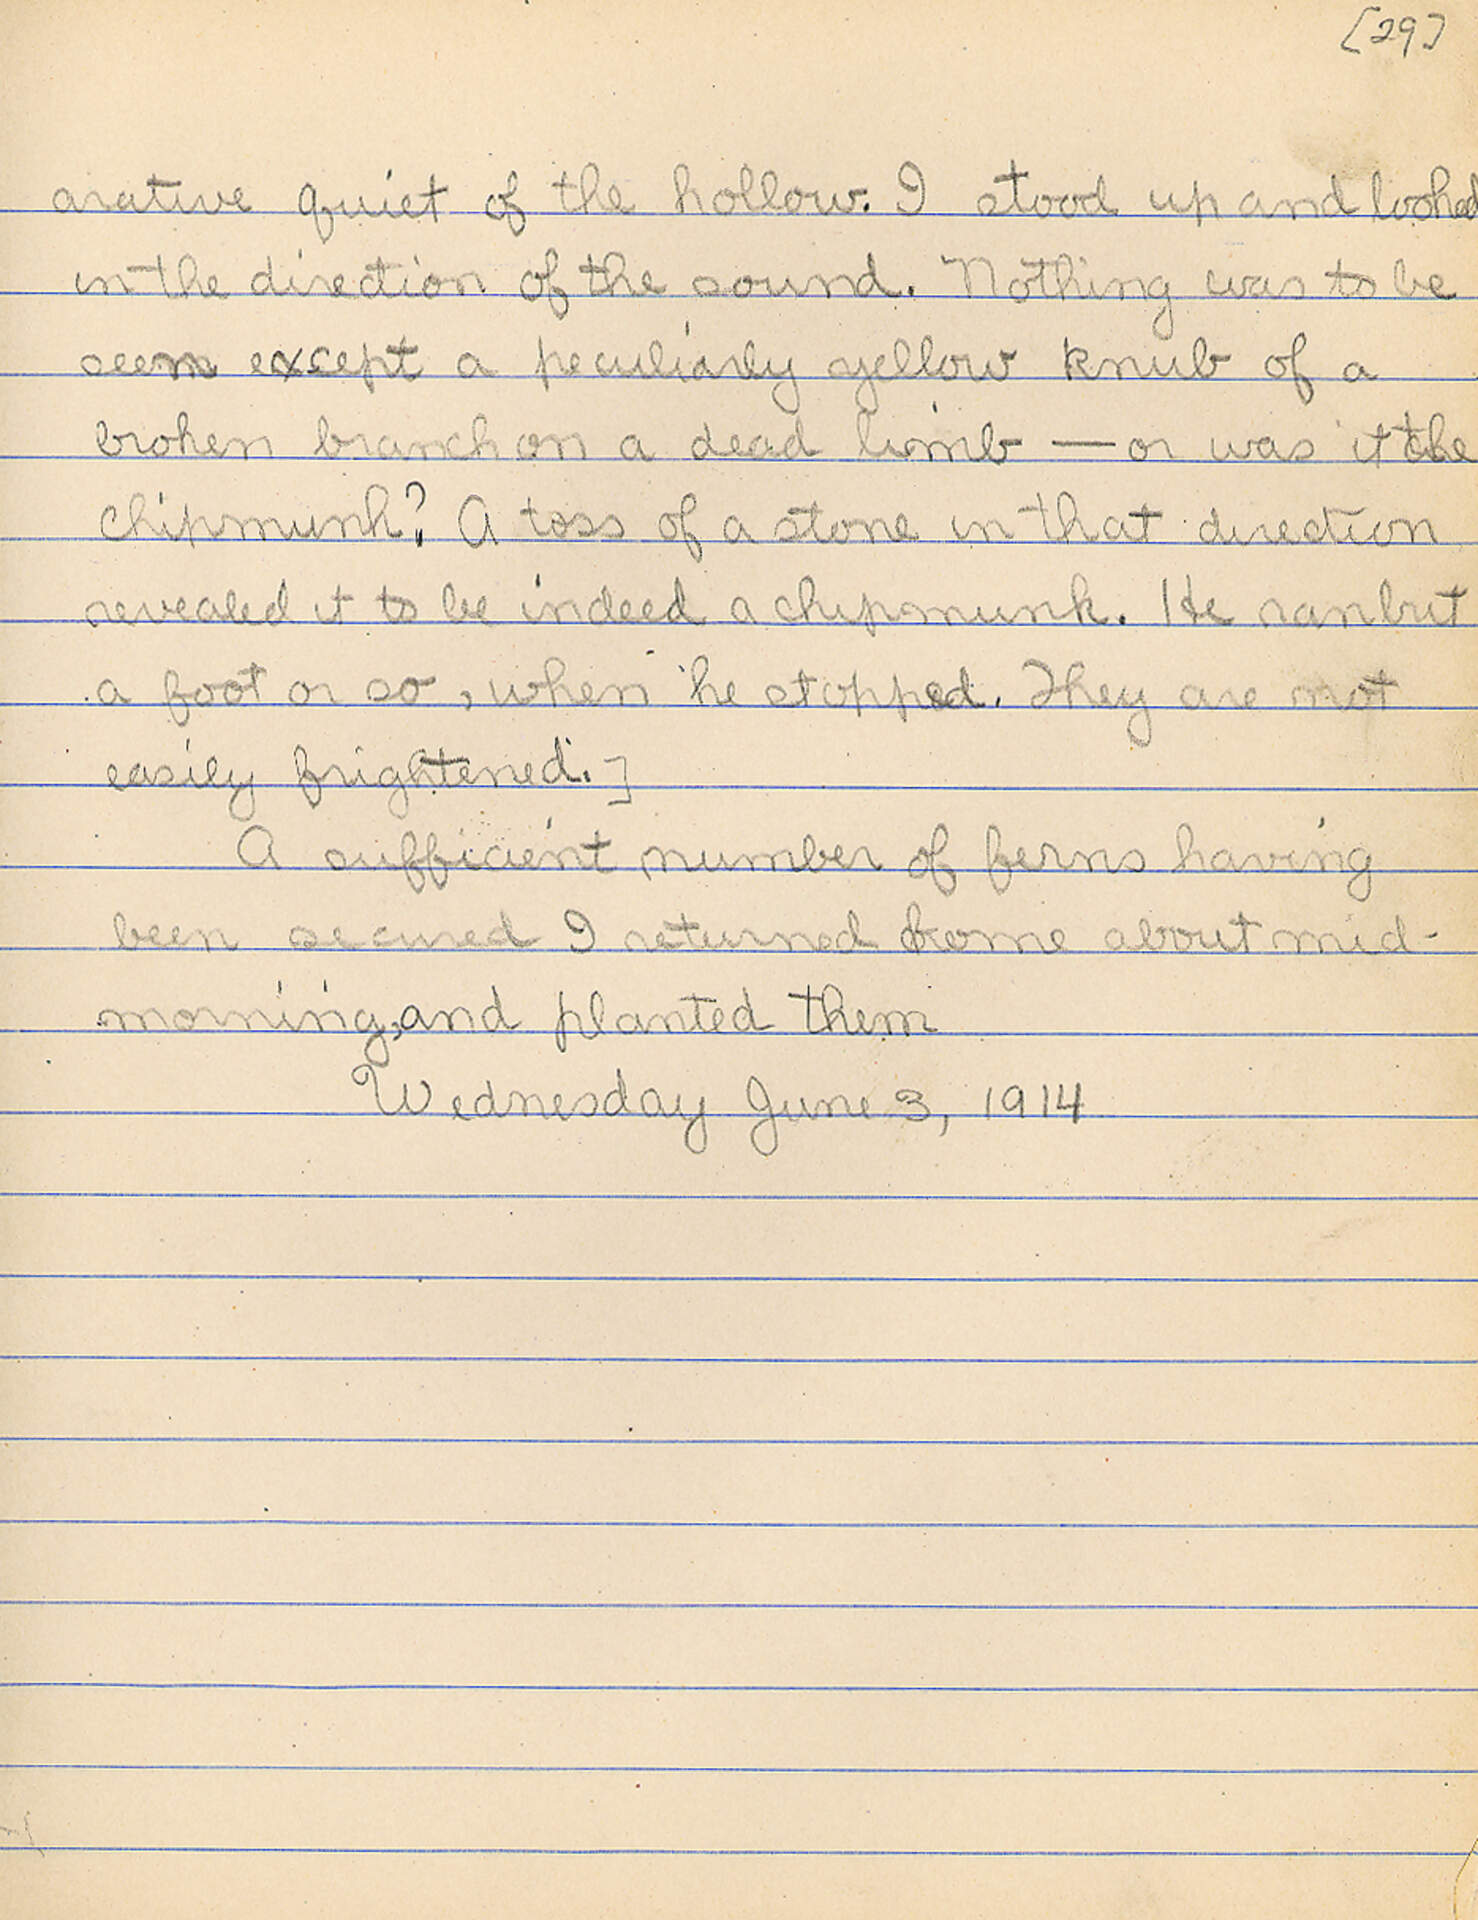 [29]
arative quiet of the hollow. I stood up and looked
in the direction of the sound. Nothing was to be
seen except a peculiarly yellow knub of a
broken branch on a dead limb — or was it the
chipmunk? A toss of a stone in that direction
revealed it to be indeed a chipmunk. He ran but
a foot or so, when he stopped. They are not
easily frightened.]
A sufficient number of ferns having
been secured I returned home about mid-
morning, and planted them
Wednesday June 3, 1914